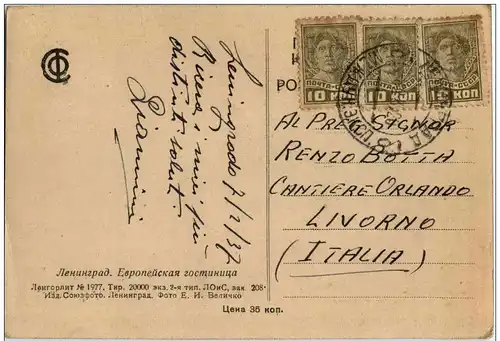 Leningrado 7/2/37
Riceva i miei più
distinti saluti
AL PREG. SIGNOR
RENZO BOTTA
CANTIERE ORLANDO
LIVORNO
(ITALIA)
ПОЧТА СССР
10 КОП
ПОЧТА СССР
10 КОП
ПОЧТА СССР
10 КОП
Ленинград. Европейская гостиница
Ленгорлит № 1977. Тир. 20000 экз. 2-я тип. ЛОиС, зак. 208·
Изд. Союзфото. Ленинград. Фото Е. И. Величко
Цена 35 коп.